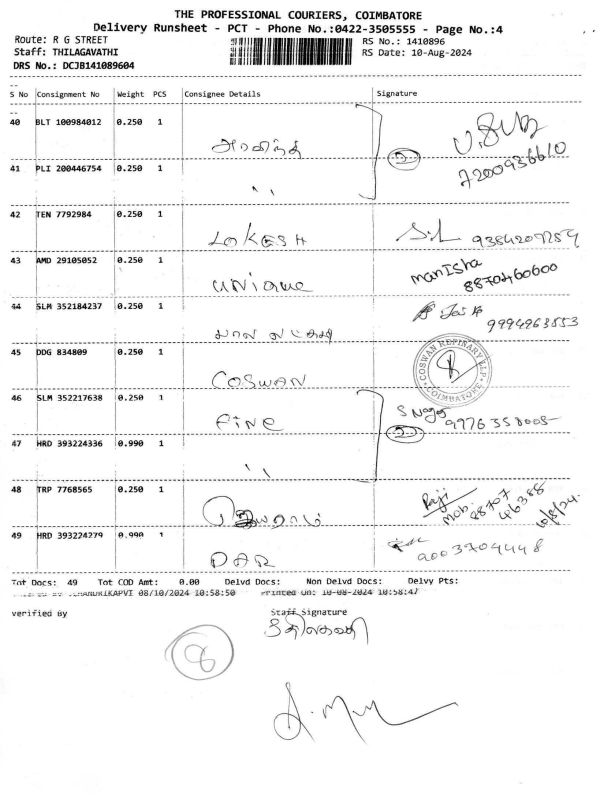 THE PROFESSIONAL COURIERS, COIMBATORE
Delivery Runsheet - PCT - Phone No.:0422-3505555 - Page No.:4
Route: R G STREET RS No.: 1410896
Staff: THILAGAVATHI RS Date: 10-Aug-2024
DRS No.: DCJB141089604
S No Consignment No Weight PCS Consignee Details Signature
40 BLT 100984012 0.250 1
அரவிந்த் 2 7200936610
41 PLI 200446754 0.250 1
"
42 TEN 7792984 0.250 1
LOKESH
43 AMD 29105052 0.250 1 manIsha
UNIQUE 8870460600
44 SLM 352184237 0.250 1
9994963553
45 DDG 834809 0.250 1 COSWAN REFINARY LLP COIMBATORE
COSWAN
46 SLM 352217638 0.250 1
FINE 2
47 HRD 393224336 0.990 1
"
48 TRP 7768565 0.250 1 Raji
ஜெயராம் Mob: 88707 46388
49 HRD 393224279 0.990 1
DAR 9003704448
Tot Docs: 49 Tot COD Amt: 0.00 Delvd Docs: Non Delvd Docs: Delvy Pts:
08/10/2024 10:58:50 Printed On: 10-08-2024 10:58:47
verified By Staff Signature
திலகவதி
8